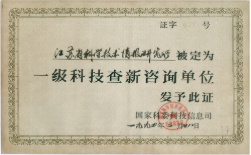 证字 号
江苏省科学技术情报研究所 被定为
一级科技查新咨询单位
发予此证
国家科委科技信息司
一九九七年 月 日